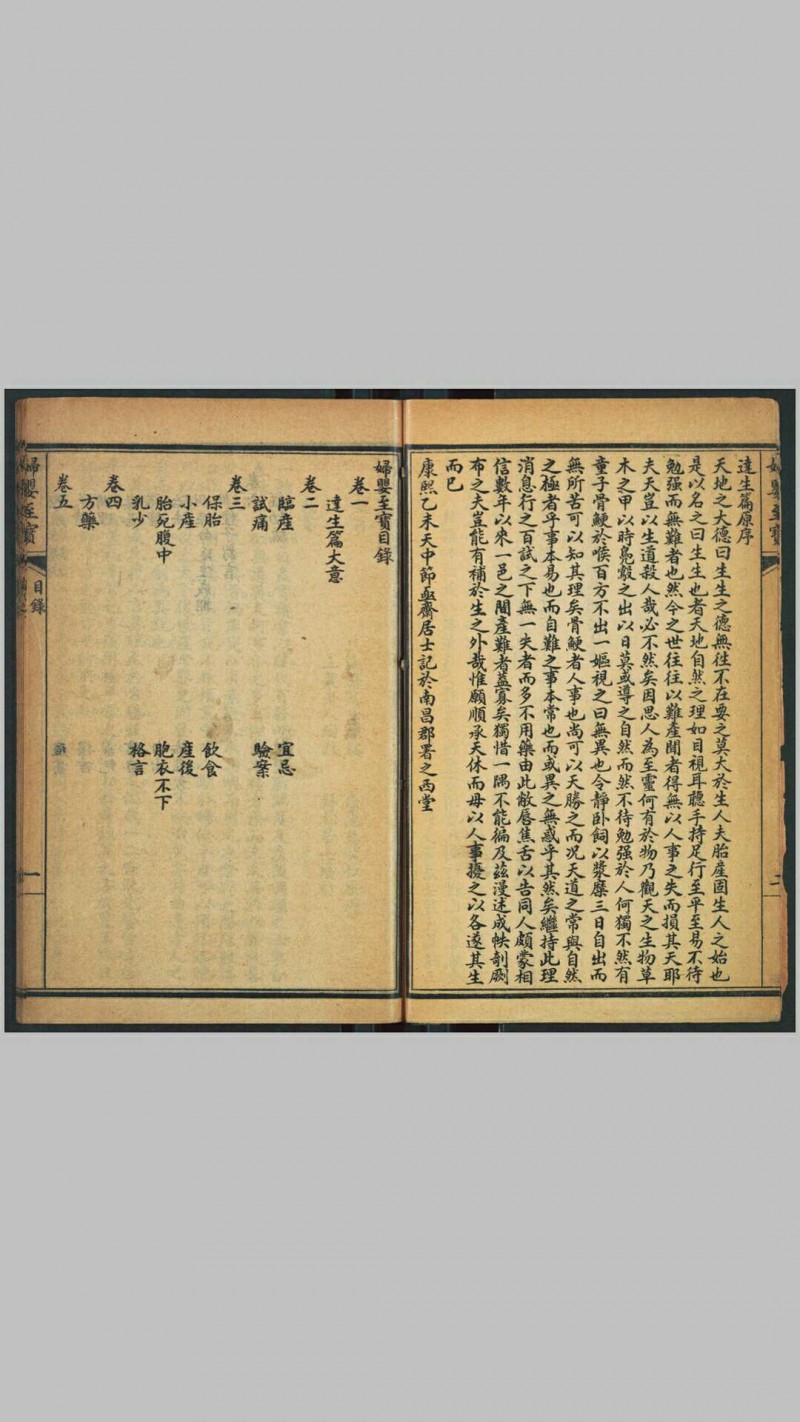 達生篇原序
天地之大德曰生生之德無徃不在要之莫大於生人夫胎產固生人之始也
是以名之曰生生也者天地自然之理如目視耳聽手持足行至平至易不待
勉强而無難者也然今之世往往以難產聞者得無以人事之失而損其天耶
夫天豈以生道殺人哉必不然矣因思人為至靈何有於物乃觀天之生物草
木之甲以時鳧鷇之出以日莫或導之自然而然不待勉强於人何獨不然有
童子骨鯁於喉百方不出一嫗視之曰無異也令靜卧飼以漿糜三日自出而
無所苦可以知其理矣骨鯁者人事也尚可以天勝之而况天道之常與自然
之極者乎事本易也而自難之事本常也而或異之無惑乎其然矣繼持此理
消息行之百試之下無一失者而多不用藥由此敝唇焦舌以告同人頗蒙相
信數年以來一邑之間產難者蓋寡矣獨惜一隅不能徧及茲漫述成帙剞劂
布之夫豈能有補於生之外哉惟願順承天休而毋以人事擾之以各遂其生
而已
康熙乙未天中節亟齋居士記於南昌郡署之西堂
二
婦嬰至寶目錄
卷一
達生篇大意
卷二
臨產 宜忌
試痛 驗案
卷三
保胎 飲食
小產 產後
胎死腹中 胞衣不下
乳少 格言
卷四
方藥
卷五
婦嬰至寶
目錄
一